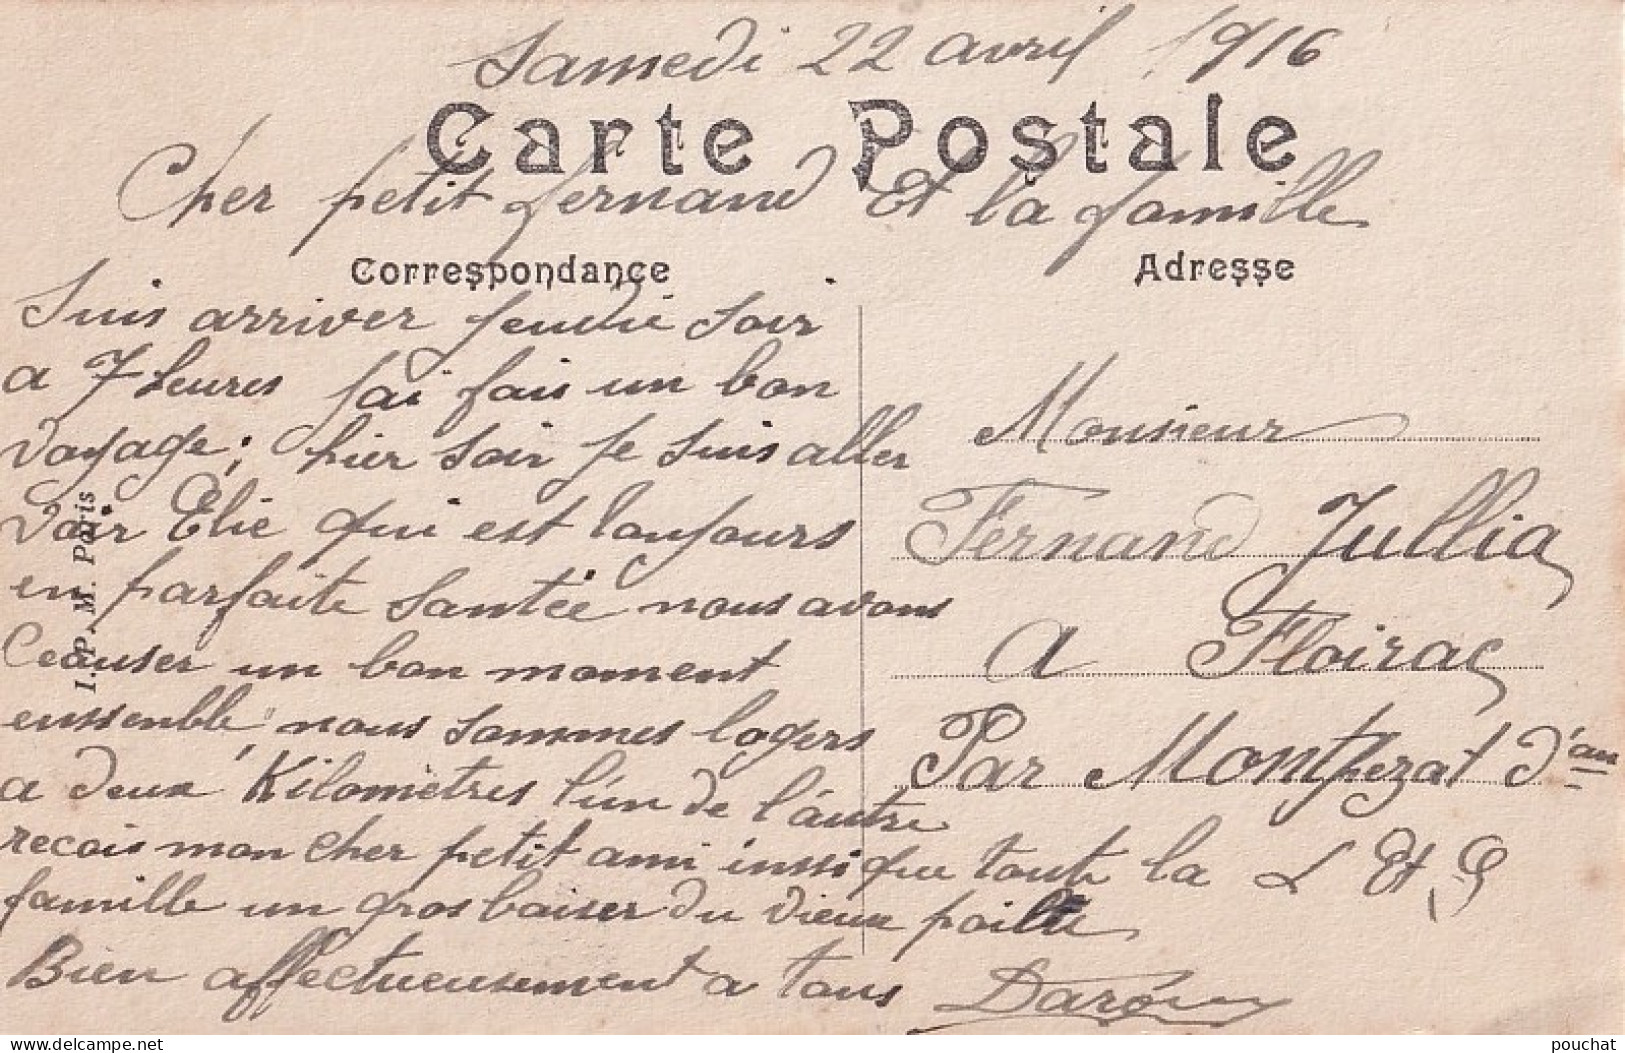 Samedi 22 avril 1916
Carte Postale
Cher petit fernand Et la famille
Correspondance
Suis arriver jeudie soir
a 7 heures jai fais un bon
voyage; hier soir je suis aller
voir Elie qui est toujours
en parfaite santée nous avons
Ceauser un bon moment
enssemble, nous sommes logers
a deux Kilomètres l'un de l'autre
recois mon cher petit ami inssi que toute la
famille un gros baiser du vieux poillu
Bien affectueusement a tous
I. P. M. Paris
Adresse
Monsieur
Fernand Jullia
a Floirac
Par Montpezat d'
L Et G
pouchat
www.delcampe.net